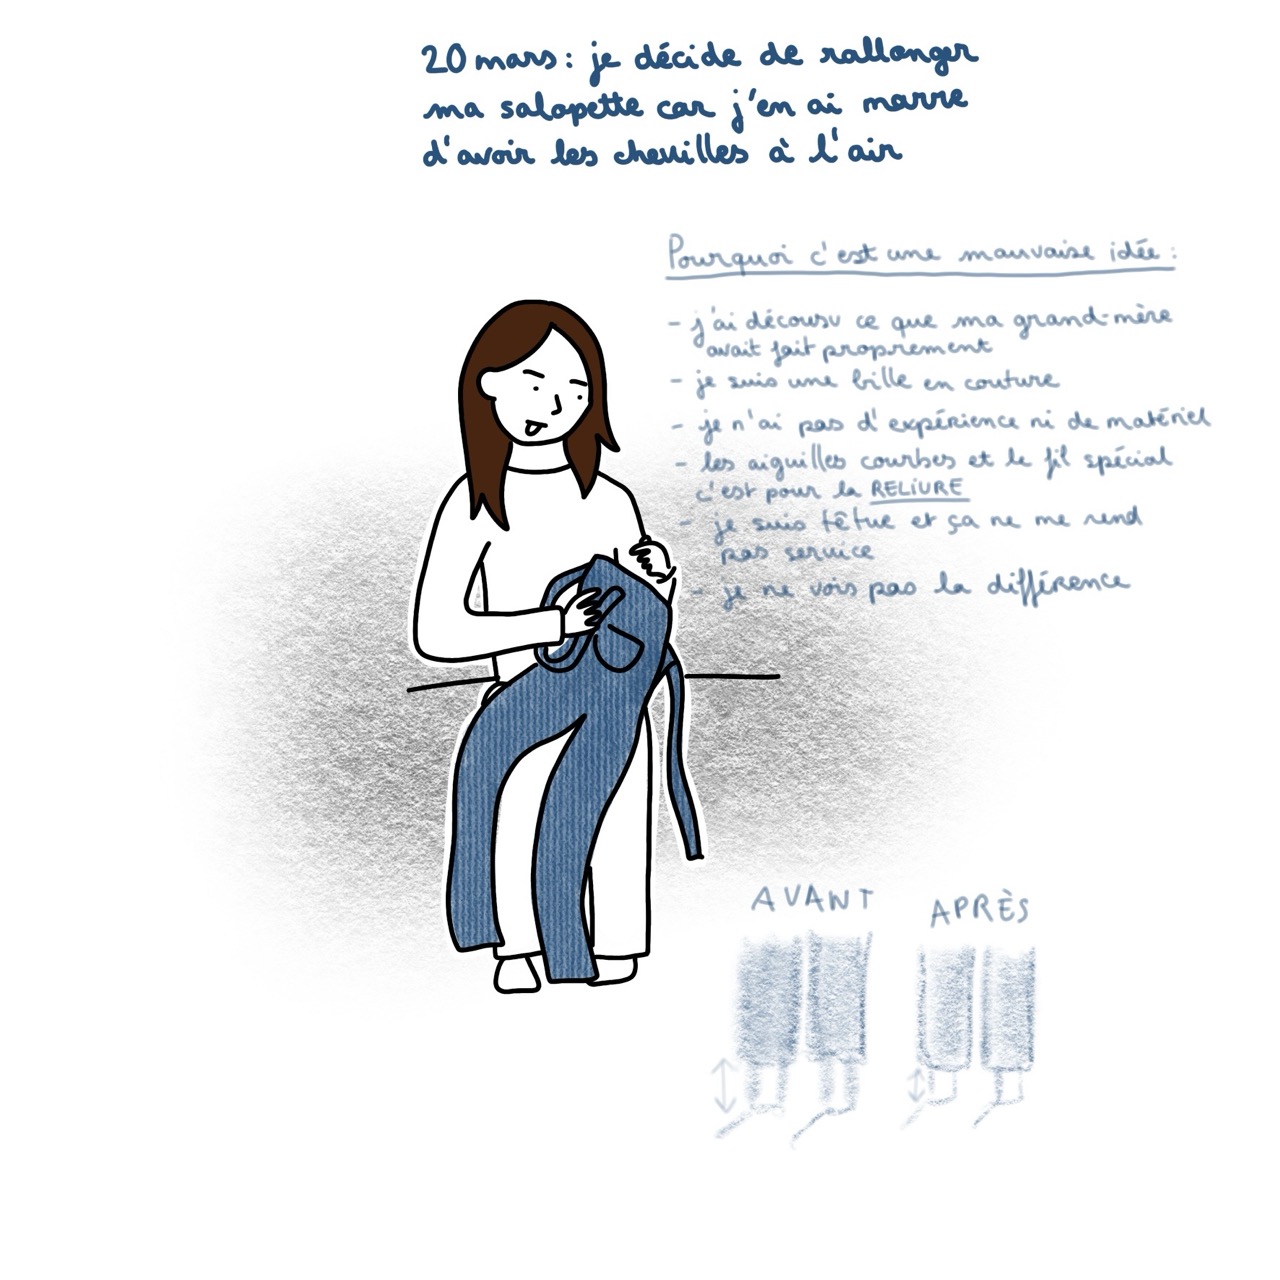 20 mars : je décide de rallonger
ma salopette car j'en ai marre
d'avoir les chevilles à l'air
Pourquoi c'est une mauvaise idée :
- j'ai décousu ce que ma grand-mère
avait fait proprement
- je suis une bille en couture
- je n'ai pas d'expérience ni de matériel
- les aiguilles courbes et le fil spécial
c'est pour la RELIURE
- je suis têtue et ça ne me rend
pas service
- je ne vois pas la différence
AVANT
APRÈS